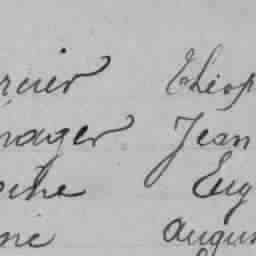 rcier Théop
nager Jean
oine Eug
ne Augus